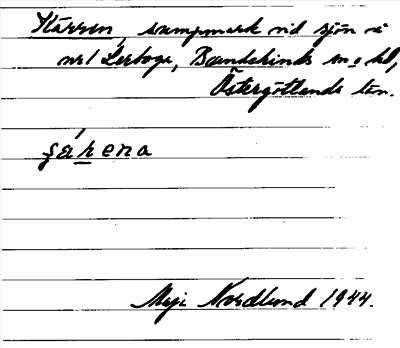 Kärren, sumpmark vid sjön å
nr 1 Lerboga, Bankekinds sn o hd,
Östergötlands län.
Maja Nordlund 1944.